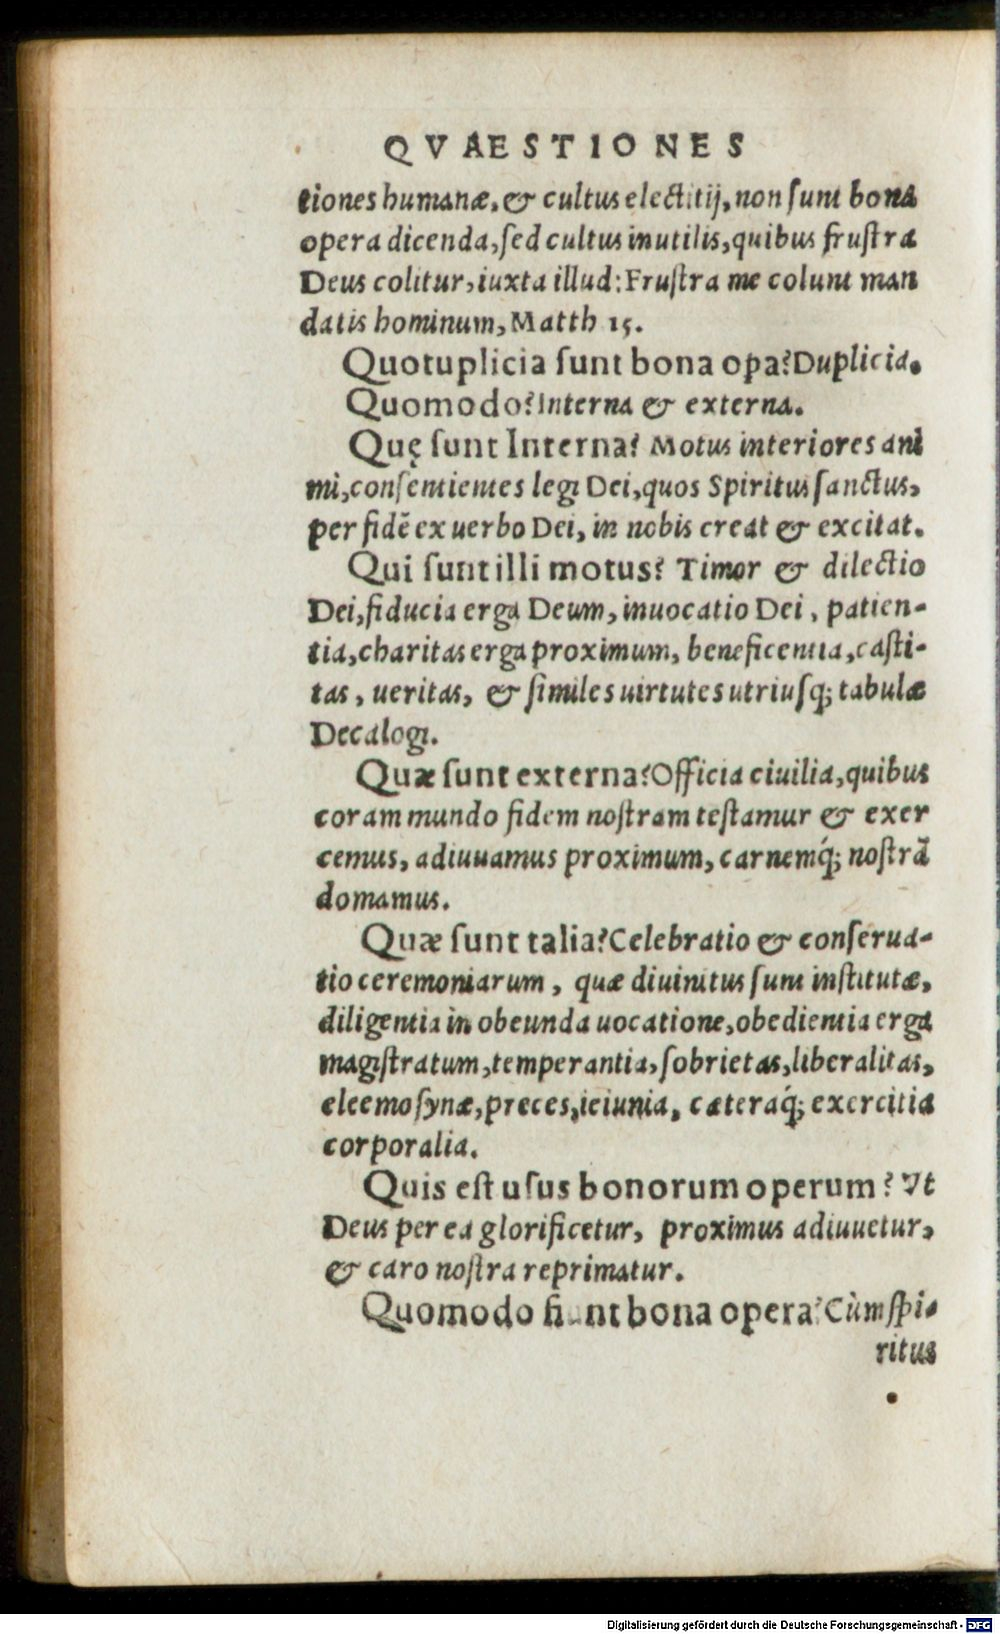 QVAESTIONES
tiones humanæ, & cultus electitij, non ſunt bona
opera dicenda, ſed cultus inutilis, quibus fruſtra
Deus colitur, iuxta illud: Fruſtra me colunt man
datis hominum, Matth 15.
Quotuplicia ſunt bona opa? Duplicia.
Quomodo? Interna & externa.
Quę ſunt Interna? Motus interiores ani
mi, conſentientes legi Dei, quos Spiritus ſanctus,
per fidẽ ex uerbo Dei, in nobis creat & excitat.
Qui ſunt illi motus? Timor & dilectio
Dei, fiducia erga Deum, inuocatio Dei, patien-
tia, charitas erga proximum, beneficentia, caſti-
tas, ueritas, & ſimiles uirtutes utriuſq; tabulæ
Decalogi.
Quæ ſunt externa? Officia ciuilia, quibus
coram mundo fidem noſtram teſtamur & exer
cemus, adiuuamus proximum, carnemq́; noſtrã
domamus.
Quæ ſunt talia? Celebratio & conſerua-
tio ceremoniarum, quæ diuinitus ſunt inſtitutæ,
diligentia in obeunda uocatione, obedientia erga
magiſtratum, temperantia, ſobrietas, liberalitas,
eleemoſynæ, preces, ieiunia, cæteraq́; exercitia
corporalia.
Quis eſt uſus bonorum operum? Vt
Deus per ea glorificetur, proximus adiuuetur,
& caro noſtra reprimatur.
Quomodo fiunt bona opera? Cùm ſpi-
ritus
Digitalisierung gefördert durch die Deutsche Forschungsgemeinschaft - DFG